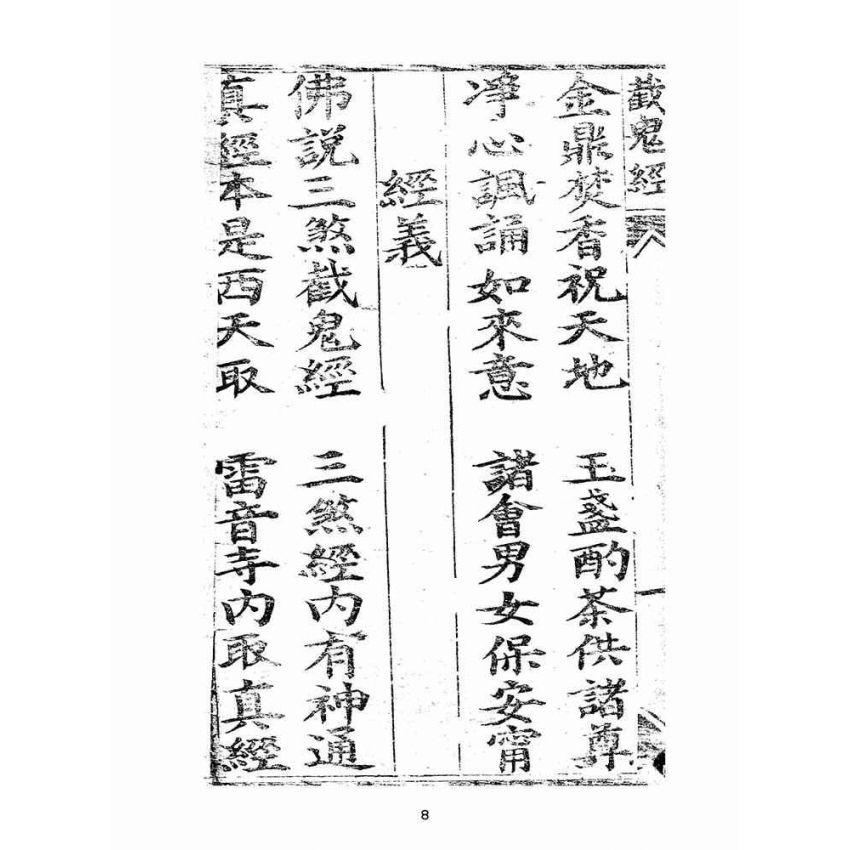 截鬼經
金鼎焚香祝天地　玉盞酌茶供諸尊
淨心諷誦如來意　諸會男女保安甯
經義
佛說三煞截鬼經　三煞經内有神通
真經本是西天取　雷音寺内取真經
8